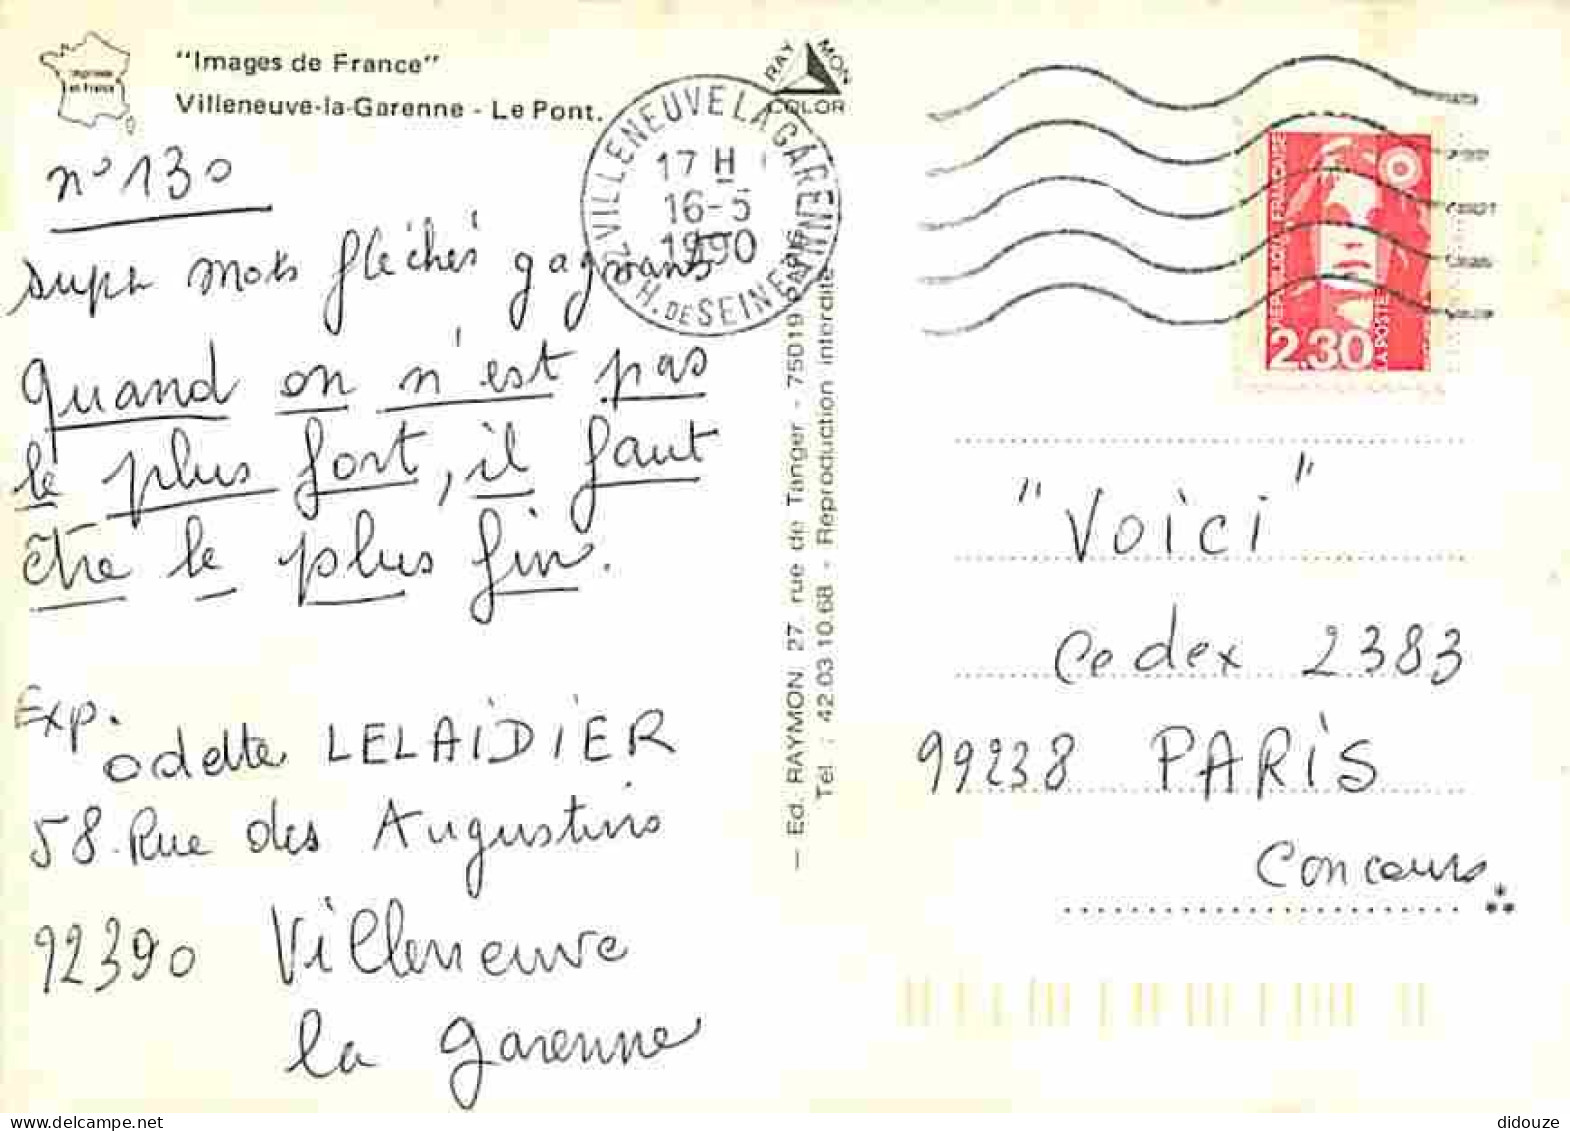 Imprimée
en France
"Images de France"
Villeneuve-la-Garenne - Le Pont.
RAY MON
COLOR
n° 130
super mots fléchés gagnants
Quand on n'est pas
le plus fort, il faut
être le plus fin.
Exp.
odette LELAIDIER
58. Rue des Augustins
92390 Villeneuve
la garenne
92 VILLENEUVE LA GARENNE
17 H
16-5
1990
H. DE SEINE
— Ed. RAYMON 27, rue de Tanger - 75019 PARIS
Tel : 42.03.10.68 - Reproduction interdite
REPUBLIQUE FRANCAISE
2,30
LA POSTE
"Voici"
Cedex 2383
99238 PARIS
Concours
didouze